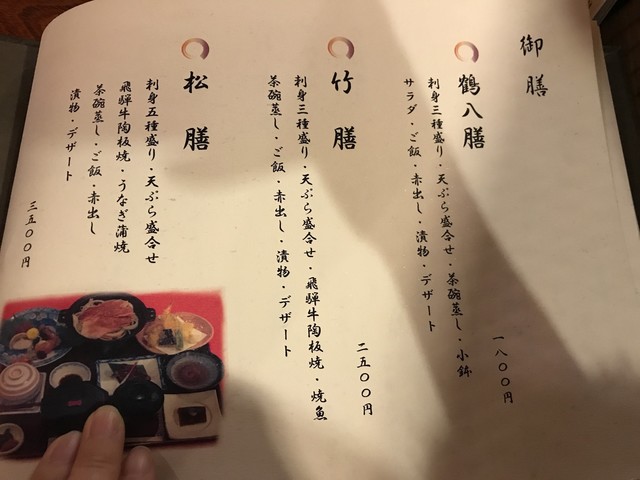 御膳
鶴八膳
刺身三種盛り・天ぷら盛合せ・茶碗蒸し・小鉢
サラダ・ご飯・赤出し・漬物・デザート
一八〇〇円
竹膳
刺身三種盛り・天ぷら盛合せ・飛騨牛陶板焼・焼魚
茶碗蒸し・ご飯・赤出し・漬物・デザート
二五〇〇円
松膳
刺身五種盛り・天ぷら盛合せ
飛騨牛陶板焼・うなぎ蒲焼
茶碗蒸し・ご飯・赤出し
漬物・デザート
三五〇〇円